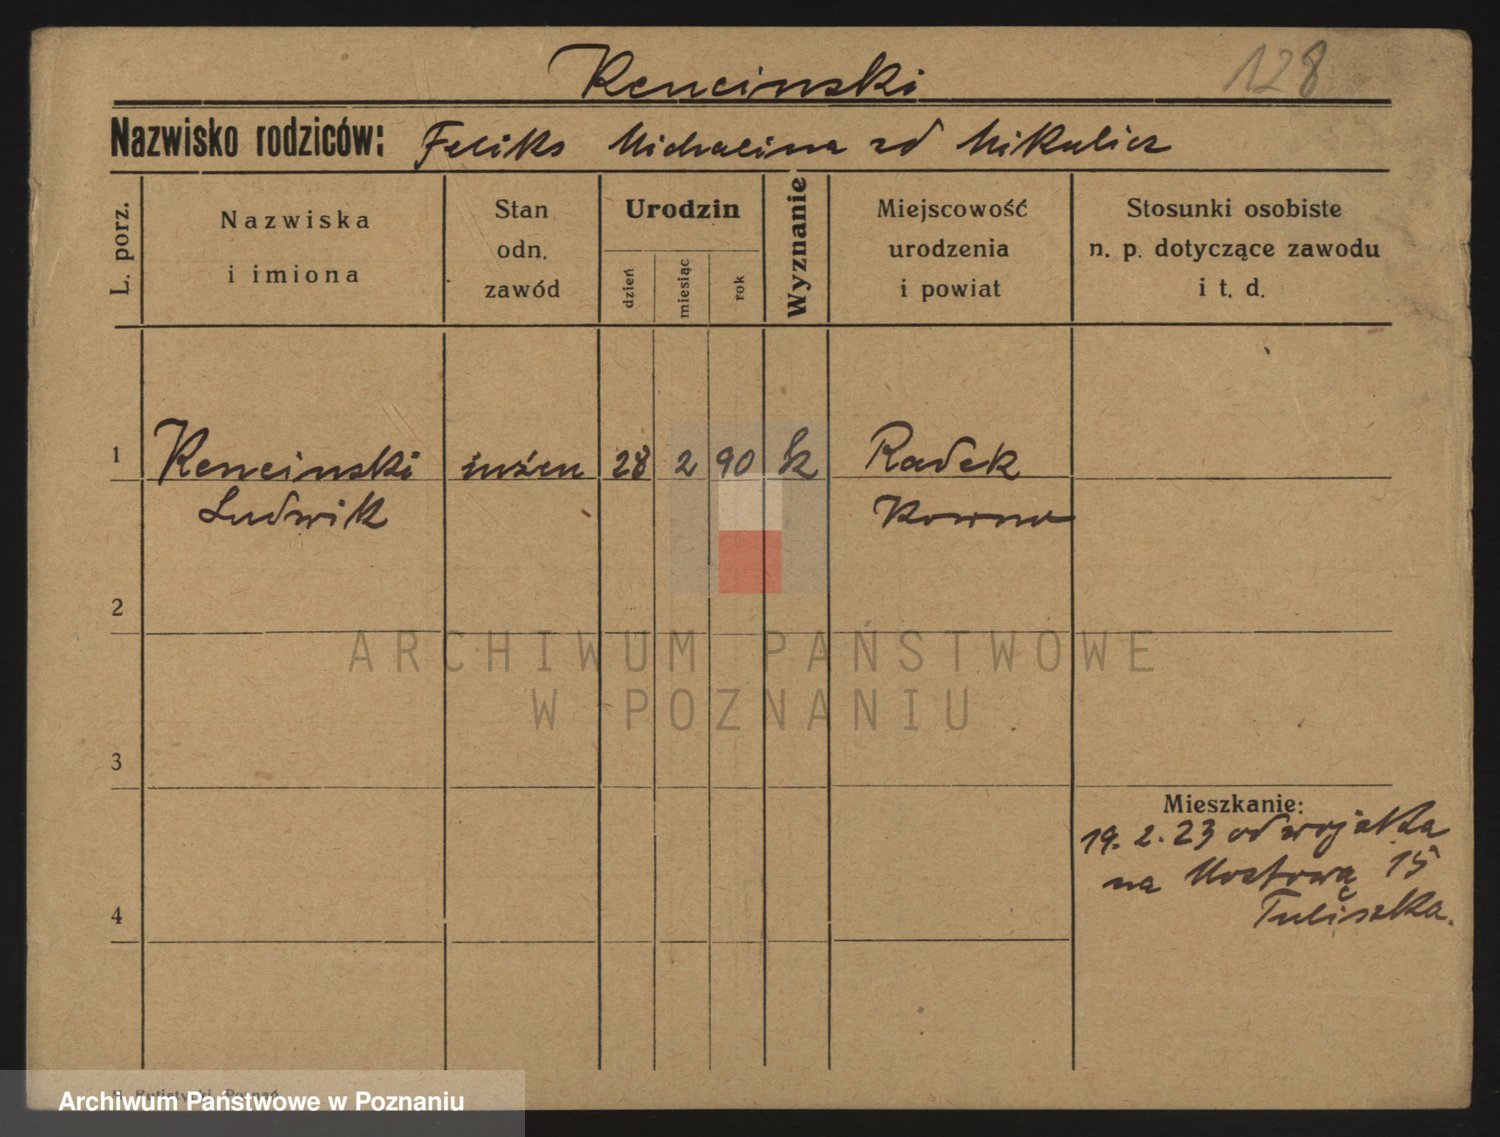 Kencinski 128
Nazwisko rodziców: Feliks Michalina zd Mikulicz
L. porz.
Nazwiska
i imiona
Stan
odn.
zawód
Urodzin
dzień
miesiąc
rok
Wyznanie
Miejscowość
urodzenia
i powiat
Stosunki osobiste
n. p. dotyczące zawodu
i t. d.
1 Kencinski inżen 28 2 90 k Radek
Ludwik Kowno
2
ARCHIWUM PAŃSTWOWE
W POZNANIU
3
Mieszkanie:
19. 2. 23 od wojaka
na Mostową 15
4 Tuliszka.
Archiwum Państwowe w Poznaniu